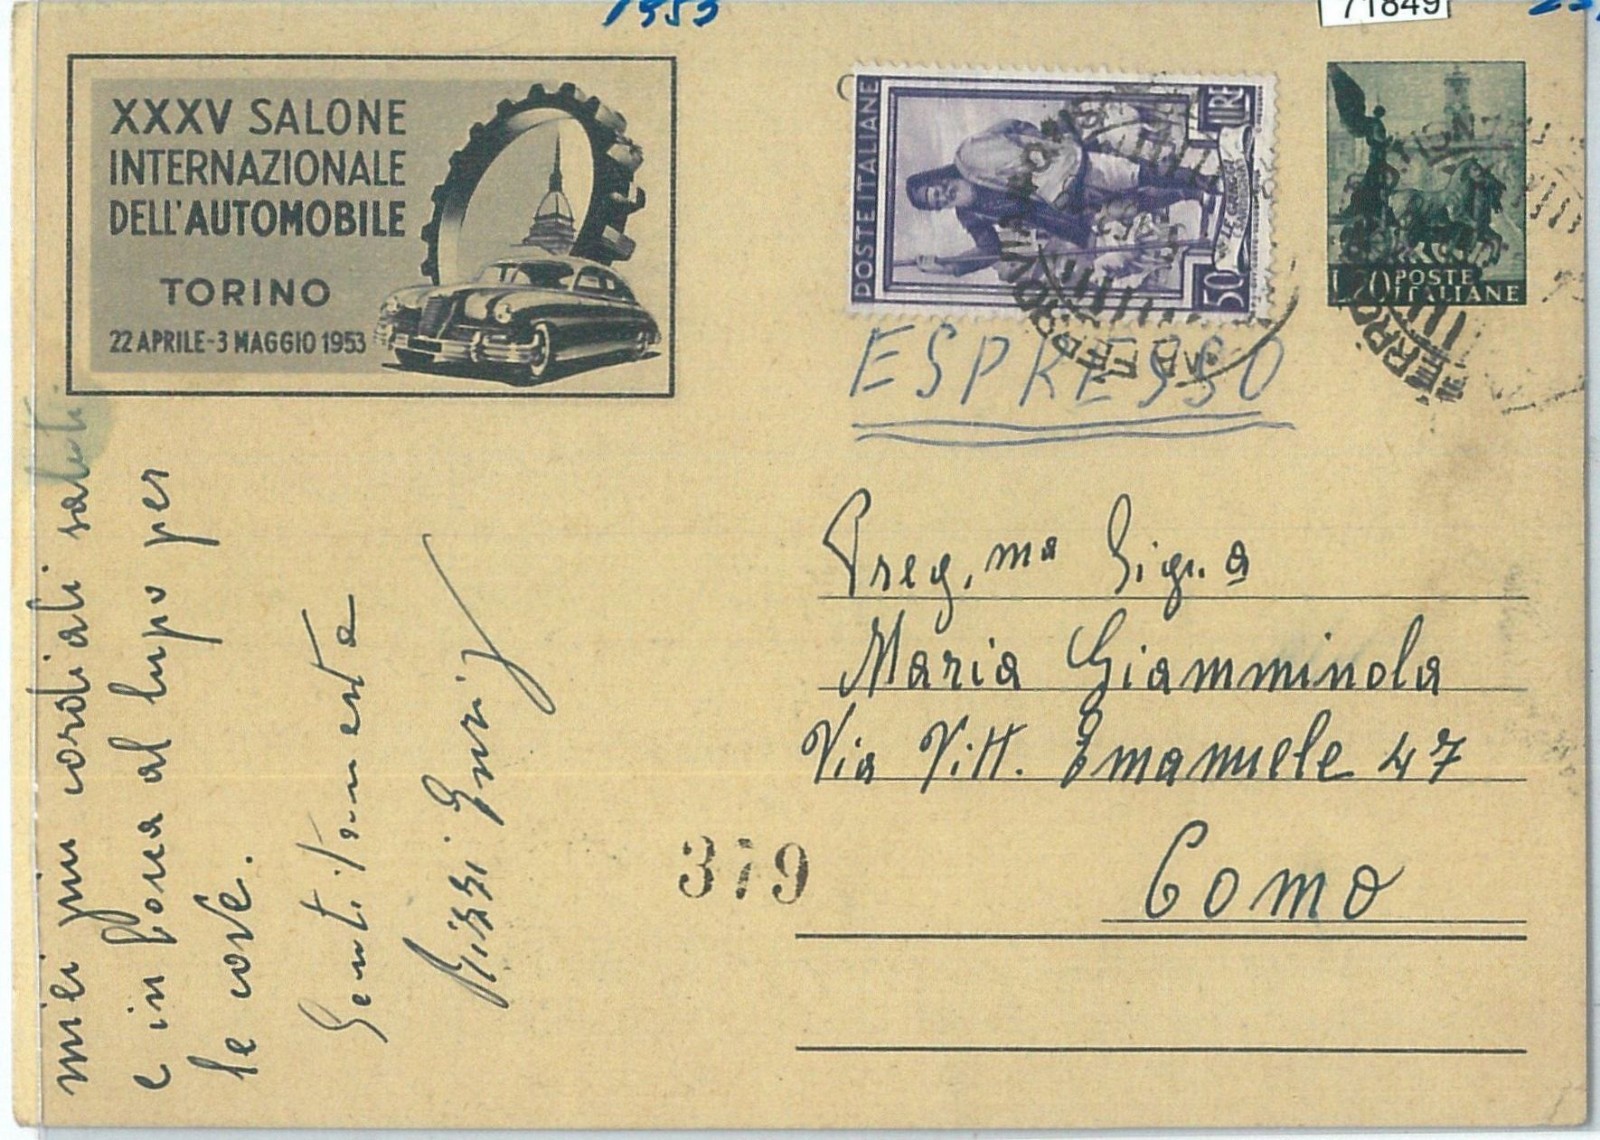 1953
71849
XXXV SALONE
INTERNAZIONALE
DELL'AUTOMOBILE
TORINO
22 APRILE-3 MAGGIO 1953
POSTE ITALIANE
LIRE
50
POSTE
ITALIANE
ESPRESSO
Preg.ma Sig.a
Maria Giamminola
Via Vitt. Emanuele 47
Como
319
miei più cordiali saluti
e in bocca al lupo per
le cove.